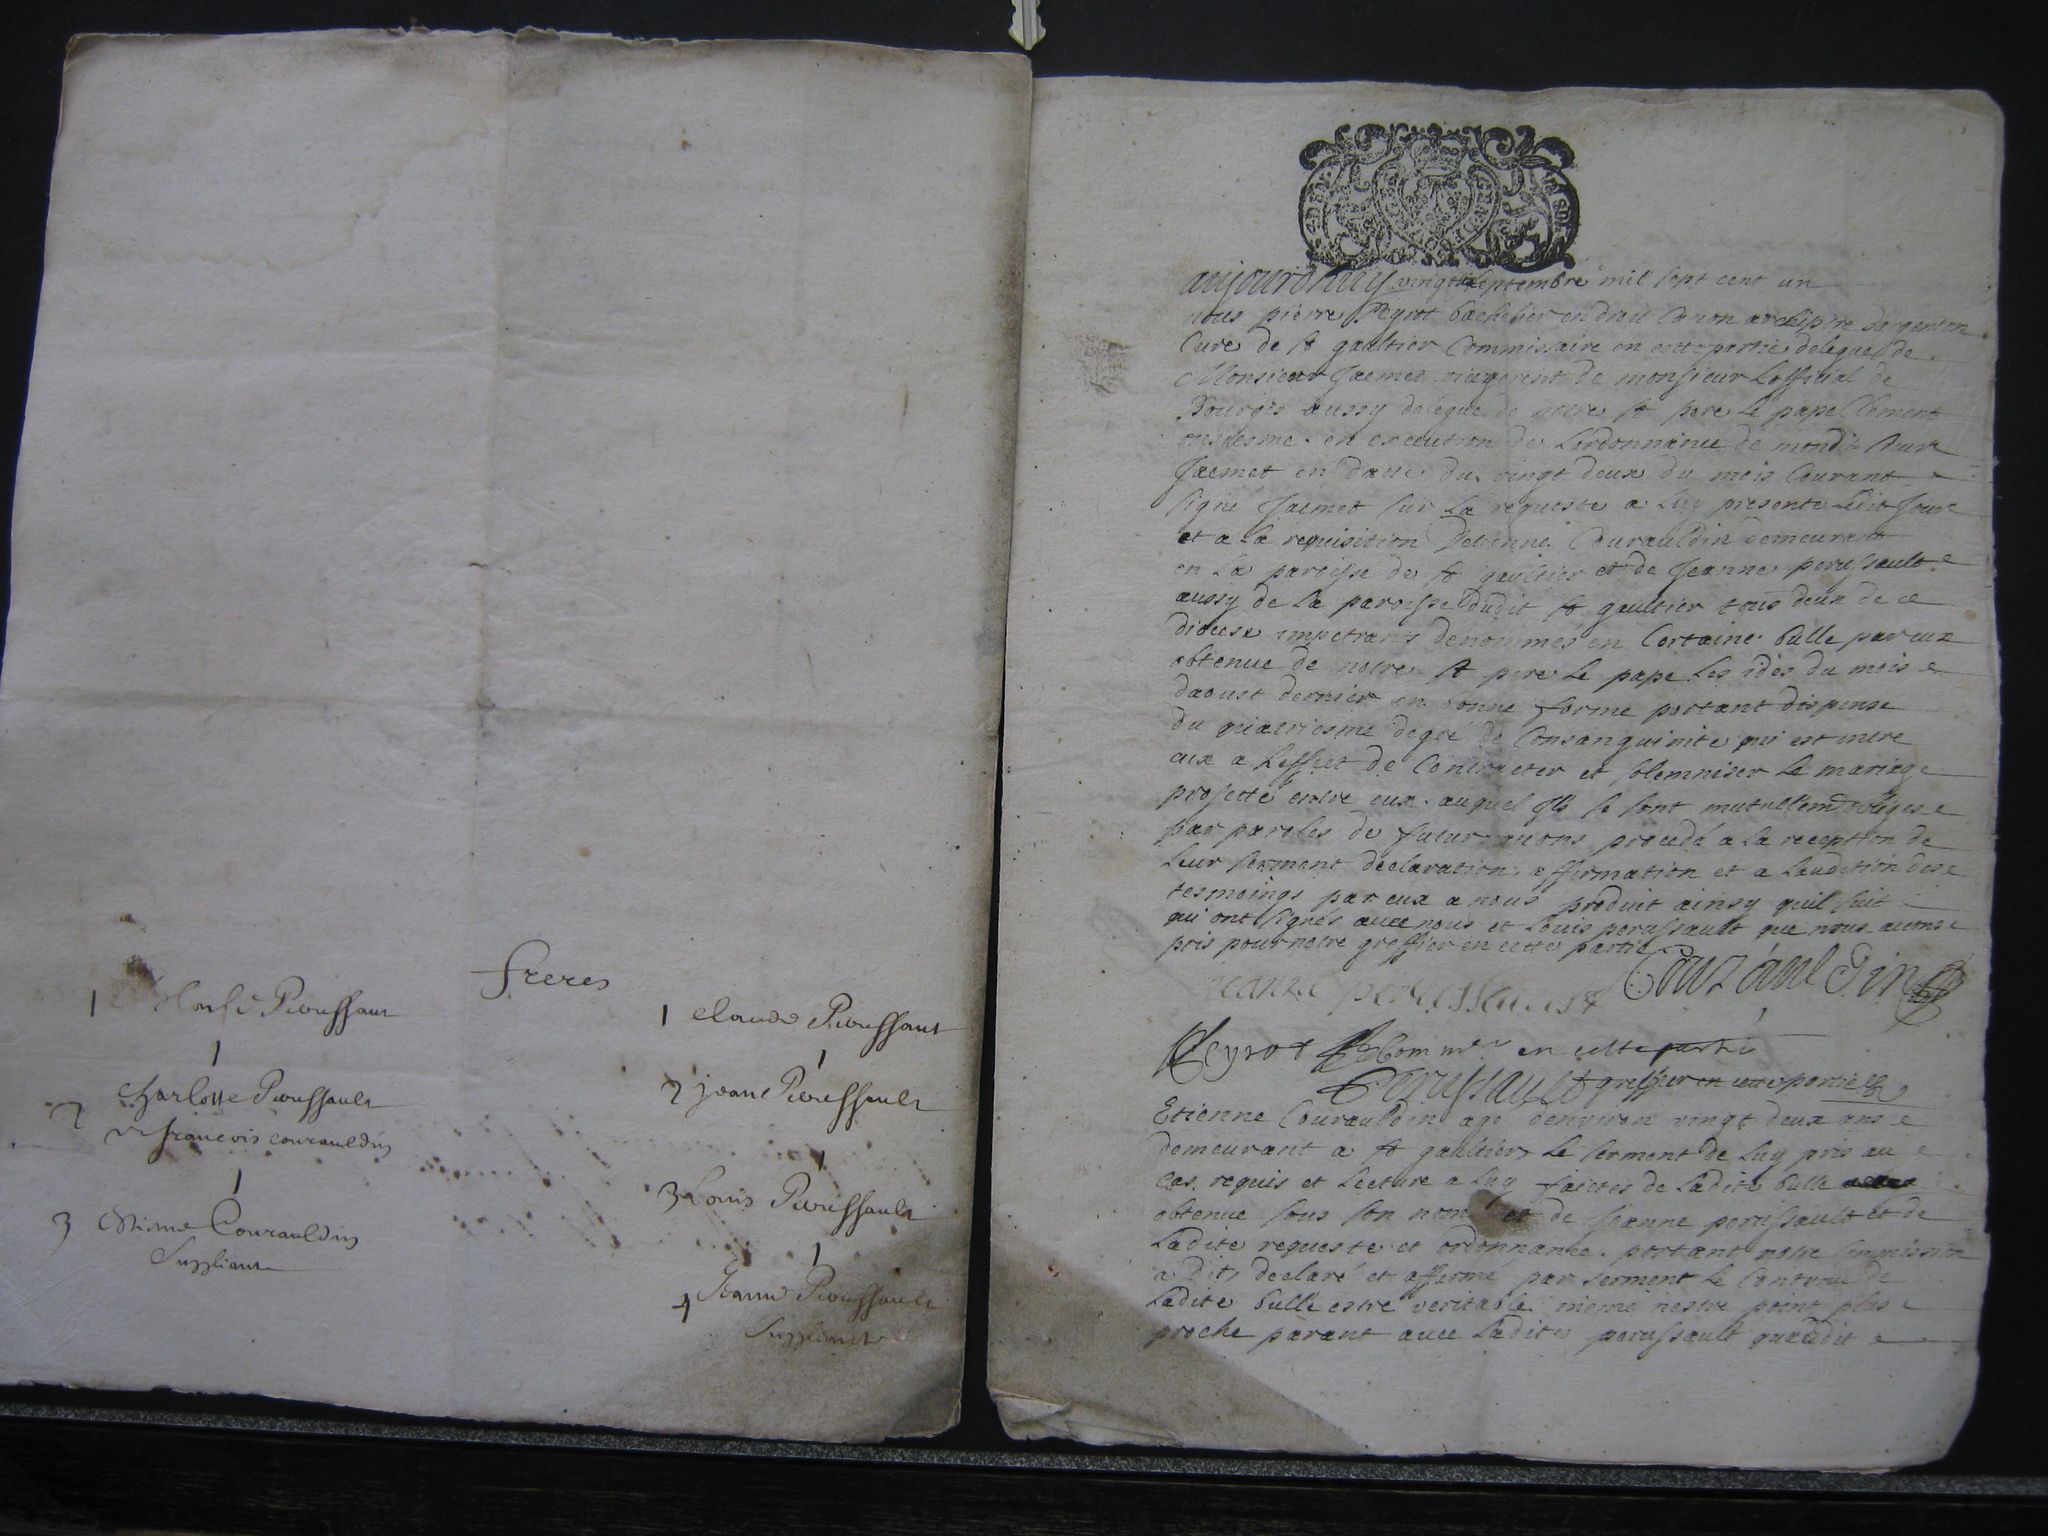 freres
1 Perussaut
charlotte Perussault
2
francois courauldin
3 Estienne Courauldin
Suppliant
1 claude Perussaut
2 jean Perussault
3 Louis Perussault
4 Jeanne Perussault
Suppliante
aujourdhuy vingt septembre mil sept cent un
nous pierre Peyrot bachelier en droit Canon archiptre dargenton
Curé de st gaultier Commissaire en cette partie delegué de
Monsieur Jacmet vicegerent de monsieur Lofficial de
Bourges aussy delegué de notre st pere Le pape Clement
onziesme en execution de Lordonnance de mondit
Jacmet en datte du vingt deux du mois Courant
signé Jacmet sur La requeste a Luy presentée Ledit Jour
et a La requisition Detienne Courauldin demeurant
en La paroisse de st gaultier et de Jeanne perussault
aussy de La paroisse dudit st gaultier tous deux de ce
diocese impetrants denommés en Certaine bulle par eux
obtenue de notre st pere Le pape Les ides du mois
daoust dernier en bonne forme portant dispense
du quatriesme degré de Consanguinité qui est entre
eux a Leffect de Contracter et solemniser Le mariage
projetté entre eux auquel Ils se sont mutuellemt obligés
par paroles de futur avons procedé a La reception de
Leur serment declaration affirmation et a Laudition des
tesmoings par eux a nous produit ainsy quil suit
qui ont signés avec nous et Louis perussault que nous avons
pris pour notre greffier en cette partie
Jeanne perussault Courauldin
Peyrot Commre en cette partie
Perussault greffier en cette partie
Etienne Courauldin agé denviron vingt deux ans
demeurant a st gaultier Le serment de Luy pris au
Cas requis et Lecture a Luy faictes de Ladite bulle
obtenue sous son nom et de Jeanne perussault et de
Ladite requeste et ordonnance portant notre Commission
a dit declaré et affermé par serment Le Contenu de
Ladite bulle estre veritable mesme nestre point plus
proche parant avec Ladite perussault quau dit